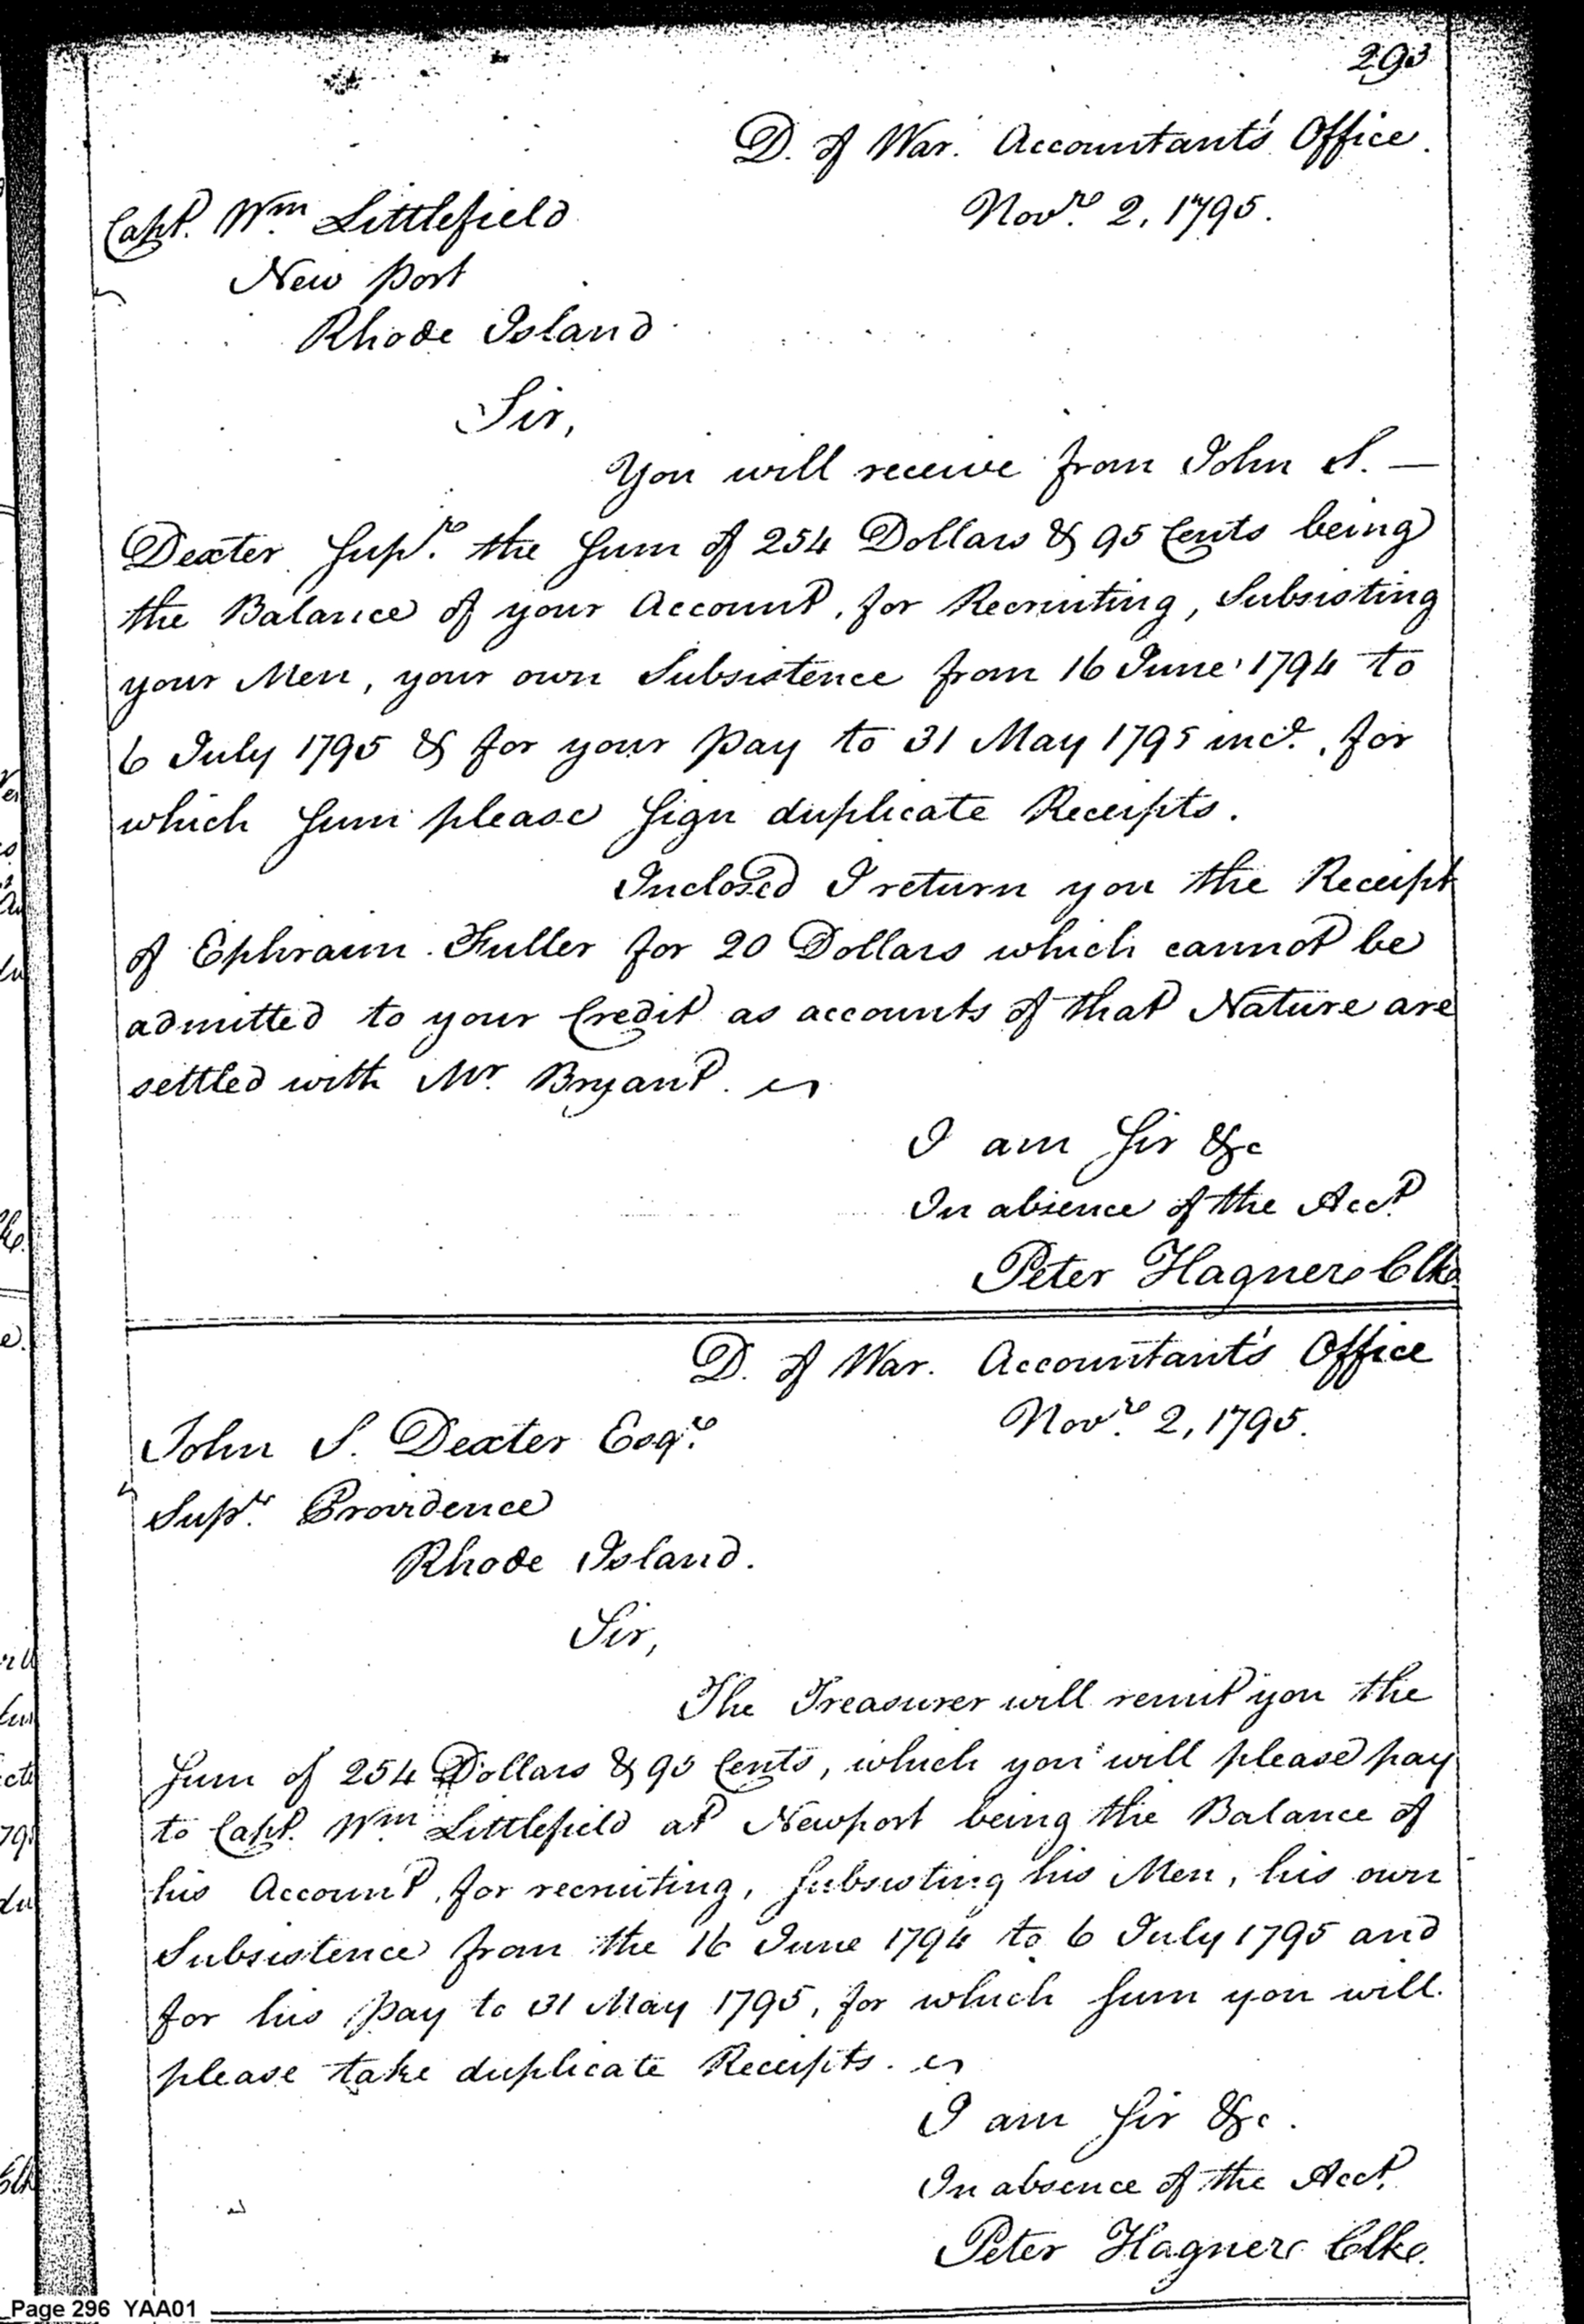 293
D. of War. Accountant's Office.
Capt. Wm Littlefield
Novr. 2, 1795.
New port
Rhode Island
Sir,
You will receive from John S. —
Dexter Supr. the Sum of 254 Dollars & 95 Cents being
the Balance of your Account, for Recruiting, Subsisting
your Men, your own Subsistence from 16 June 1794 to
6 July 1795 & for your pay to 31 May 1795 incl., for
which Sum please Sign duplicate Receipts.
Inclosed I return you the Receipt
of Ephraim Fuller for 20 Dollars which cannot be
admitted to your Credit as accounts of that Nature are
settled with Mr. Bryant.
I am Sir &c
In absence of the Acct.
Peter Hagner Clke
D. of War. Accountant's Office
Novr. 2, 1795.
John S. Dexter Esqr.
Supr. Providence
Rhode Island.
Sir,
The Treasurer will remit you the
Sum of 254 Dollars & 95 Cents, which you will please pay
to Capt. Wm Littlefield at Newport being the Balance of
his Account, for recruiting, Subsisting his Men, his own
Subsistence from the 16 June 1794 to 6 July 1795 and
for his pay to 31 May 1795, for which Sum you will
please take duplicate Receipts.
I am Sir &c.
In absence of the Acct.
Peter Hagner Clke.
Page 296 YAA01